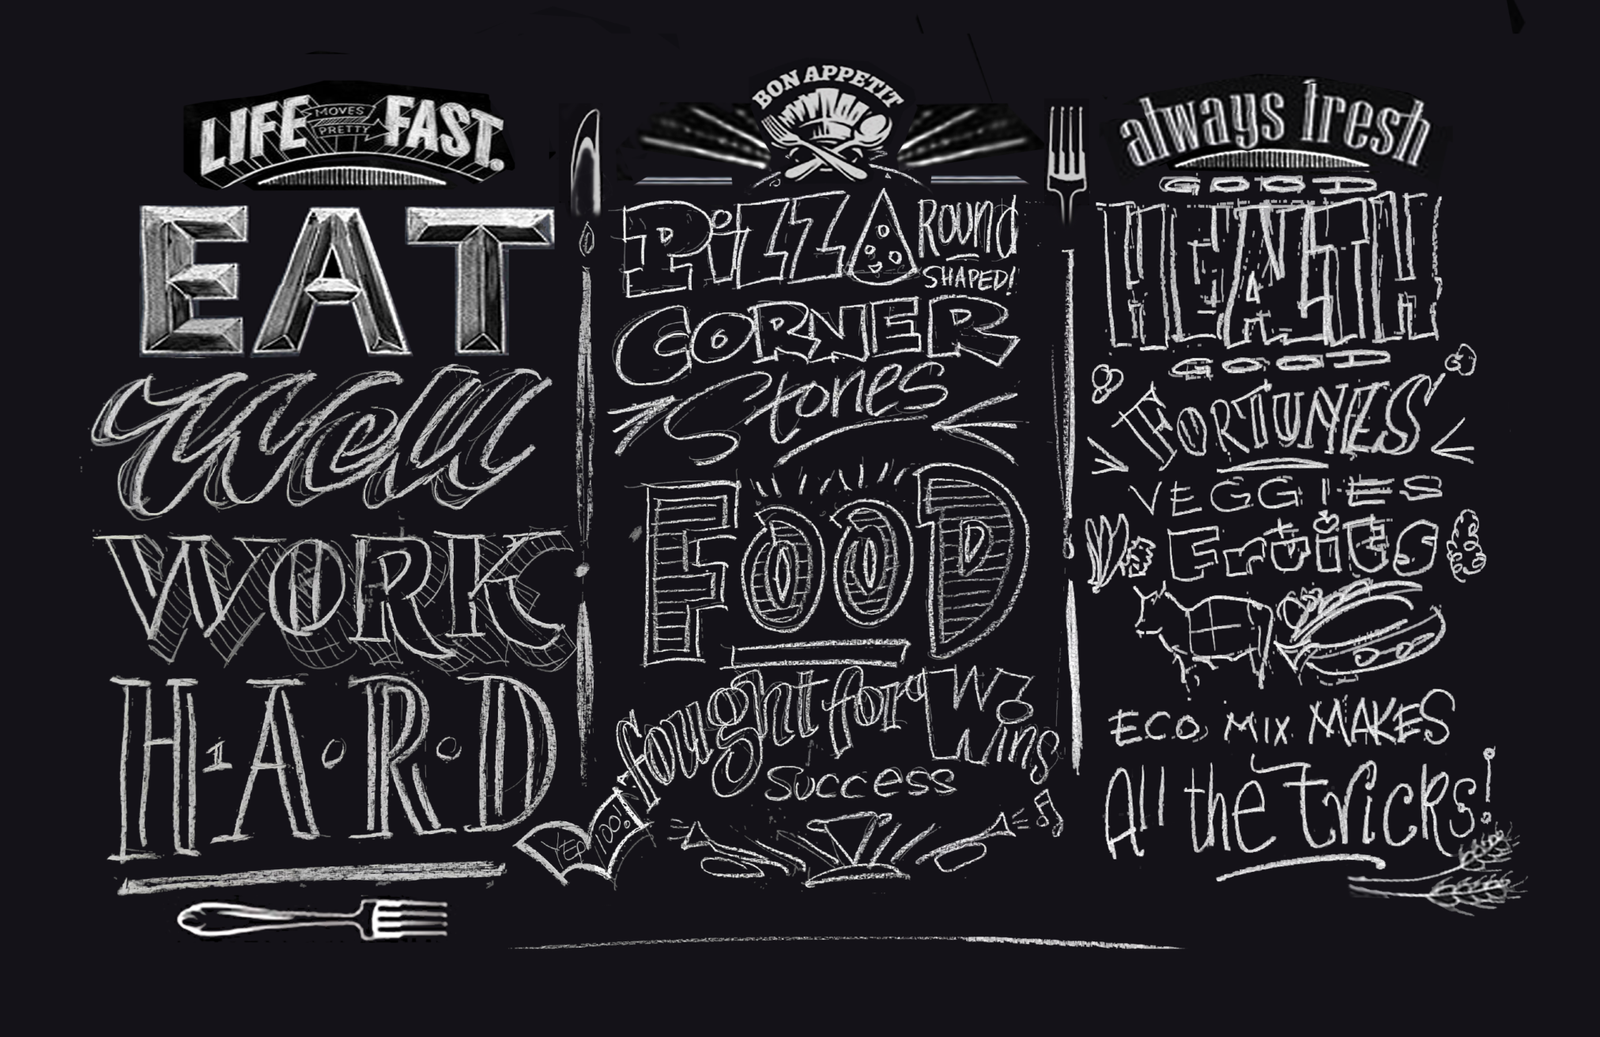 LIFE MOVES PRETTY FAST.
EAT
Well
WORK
HARD
BON APPETIT
PiZZA Round
SHAPED!
CORNER
Stones
FOOD
fought for
Wins
Success
always fresh
GOOD
HEALTH
GOOD
FORTUNES
VEGGIES
Fruits
ECO MIX MAKES
All the tricks!